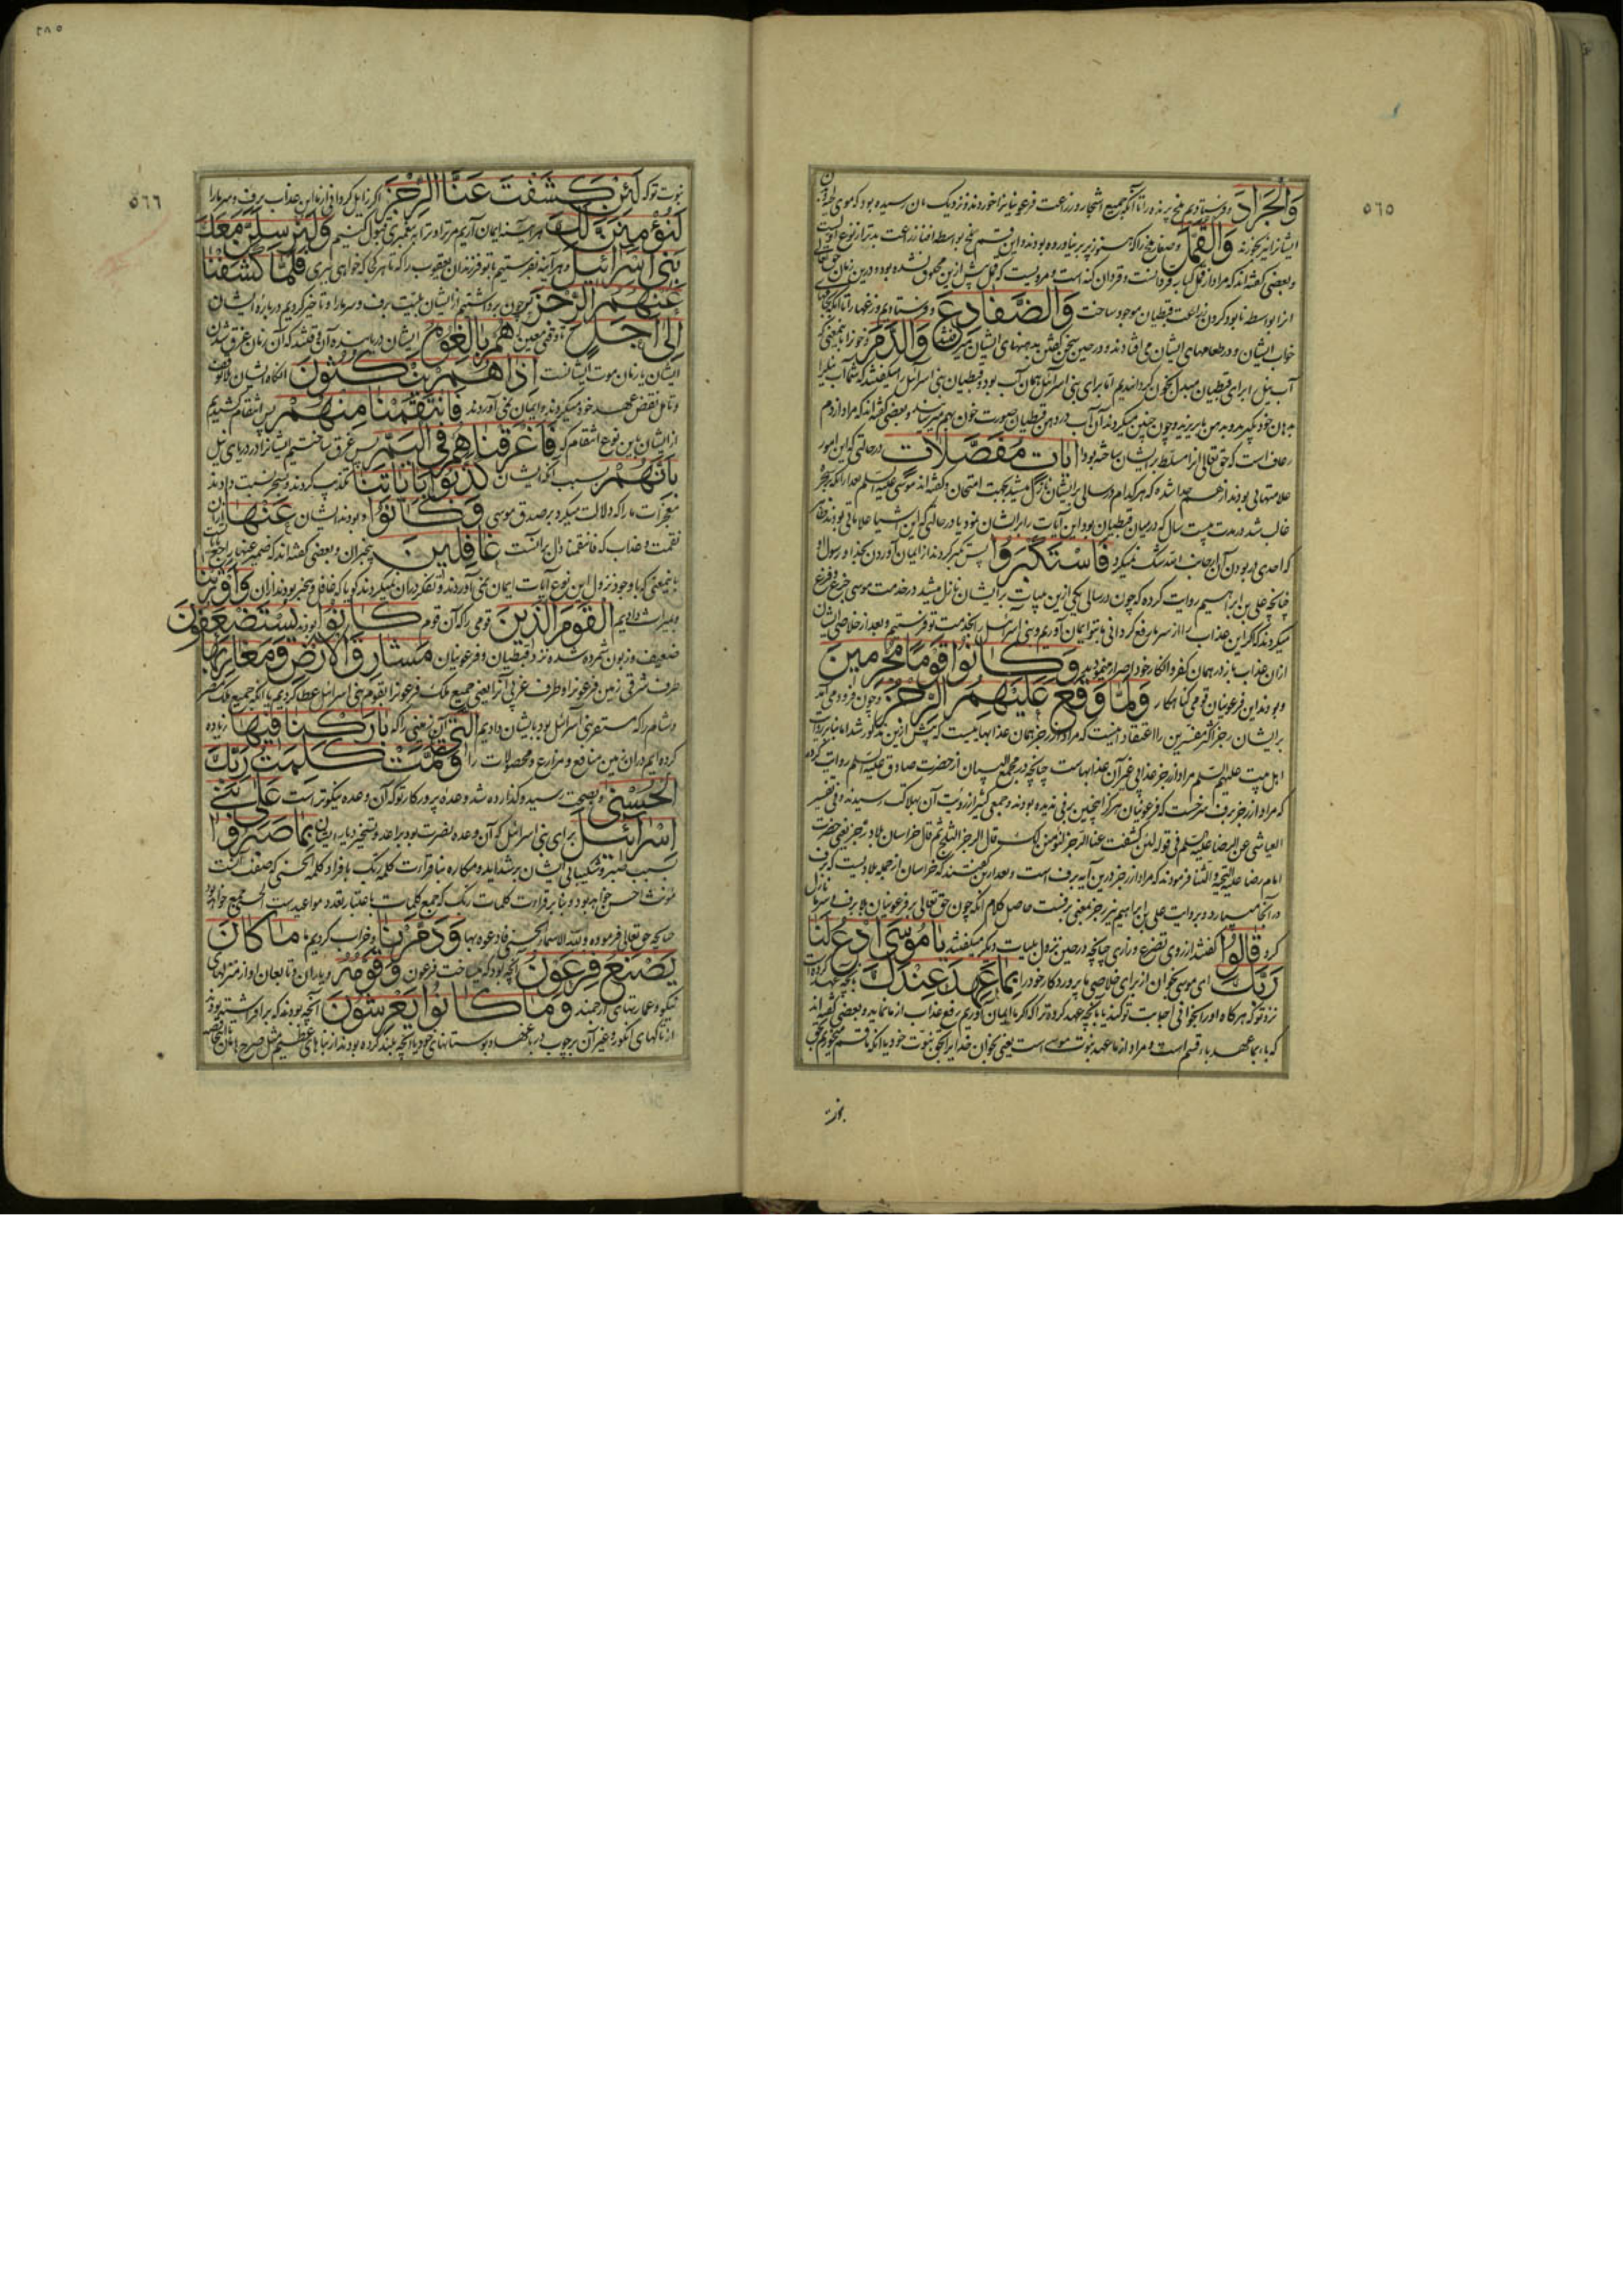 ٥٦٥
وَالْجَرَادَ و فرستادیم ملخ پرنده را تا آنکه جمیع اشجار و زراعت فرعونیانرا خوردند و نزدیک بآن رسیده بود که موی
ایشانرا نیز بخورند وَالْقُمَّلَ و صغار ملخ را که هنوز پر بر نیاورده بودند و این قسم ملخ بواسطه افنا زراعت بدتر از نوع اول است
و بعضی گفته‌اند که مراد از قمل کیا به قردانست و قردان کنه است و مرویست که قمل پیش ازین مخلوق نشده بود و درین زمان حق تعالی
انرا بواسطه نابود کردن زراعت قبطیان موجود ساخت وَالضَّفَادِعَ و فرستادیم وزغها را تا آنکه
خواب ایشان و در طعامهای ایشان می افتادند و در حین سخن گفتن بدهنهای ایشان میرفتند وَالدَّمَ و خونرا بمعنی که
آب نیل را برای قبطیان مبدل بخون گردانیدیم اما برای بنی اسرائیل همان آب بود و قبطیان بنی اسرائیل را میگفتند که شما آب نیل را
بدهان خود بگیرید و بدهن ما بریزید و چون چنین میکردند آن آب در دهن قبطیان بصورت خون بهم میرسید و بعضی گفته‌اند که مراد از دم
رعاف است که حق تعالی انرا مسلط بر ایشان ساخته بود آيَاتٍ مُفَصَّلَاتٍ در حالتی که این امور
علامتهایی بودند از هم جدا شده که هر کدام در سالی بر ایشان نازل میشد بجهت امتحان و گفته‌اند موسی علیه السلم بعد از آنکه بر سحره
غالب شد در مدت بیست سال که در میان قبطیان بود این آیات را بر ایشان نمود یا در حالتی که این اشیا علاماتی بودند
که احدی در بودن آن از جانب الله شک نمیکرد فَاسْتَكْبَرُوا پس تکبر کردند از ایمان آوردن بخدا و رسول او
چنانچه علی بن ابراهیم روایت کرده که چون در سالی یکی ازین بلیات بر ایشان نازل میشد در خدمت موسی جزع و فزع
میکردند که اگر این عذاب را از سر ما رفع گردانی ما بتو ایمان آوریم و بنی اسرائیل را بخدمت تو فرستیم و بعد از خلاصی ایشان
ازان عذاب باز در همان کفر و انکار خود اصرار مینمودند وَكَانُوا قَوْمًا مُجْرِمِينَ
و بودند این فرعونیان قومی گناهکار وَلَمَّا وَقَعَ عَلَيْهِمُ الرِّجْزُ و چون فرود می آمد
بر ایشان رجز اکثر مفسرین را اعتقاد اینست که مراد از رجز همان عذابهاییست که پیش ازین مذکور شد اما بنا بر روایت
اهل بیت علیهم السلم مراد از رجز عذابی غیر آن عذابهاست چنانچه در مجمع البیان از حضرت صادق علیه السلم روایت کرده
که مراد از رجز برف سرخست که فرعونیان هرگز اینچنین برفی ندیده بودند و جمعی کثیر از رؤیت آن بهلاکت رسیدند و فی تفسیر
العیاشی عن الرضا علیه السلم فی قوله لئن کشفت عنا الرجز لنؤمنن لک قال الرجز الثلج ثم قال خراسان بلاد رجز یعنی حضرت
امام رضا علیه التحیة و الثنا فرمودند که مراد از رجز درین آیه برف است و بعد ازین گفتند که خراسان از جمله بلادیست که برف
در آنجا میبارد و بروایت علی بن ابراهیم نیز رجز بمعنی برفست حاصل کلام انکه چون حق تعالی بر فرعونیان بلا برف و سرما نازل
کرد قَالُوا گفتند از روی تضرع و زاری چنانچه در حین نزول بلیات دیگر میگفتند يَا مُوسَى ادْعُ لَنَا
رَبَّكَ ای موسی بخوان از برای خلاصی ما پروردگار خود را بِمَا عَهِدَ عِنْدَكَ بانچه عهد کرده است
نزد تو که هرگاه او را بخوانی اجابت تو کند یا بآنچه عهد کرده ترا که اگر ما ایمان آوریم رفع عذاب از ما نماید و بعضی گفته‌اند
که باء بما عهد باء قسم است و مراد از ما عهد نبوت موسی است یعنی بخوان خدا را بحق نبوت خود یا آنکه ما قسم میخوریم بحق
نبوت
٢٨٥
٥٦٦
نبوت تو که لَئِنْ كَشَفْتَ عَنَّا الرِّجْزَ اگر زایل گردانی از ما این عذاب برف و سرما را
لَنُؤْمِنَنَّ لَكَ هر آینه ایمان آریم مر ترا و ترا به پیغمبری قبول کنیم وَلَنُرْسِلَنَّ مَعَكَ
بَنِي إِسْرَائِيلَ و هر آینه بفرستیم با تو فرزندان یعقوب را که تا هر کجا که خواهی ببری فَلَمَّا كَشَفْنَا
عَنْهُمُ الرِّجْزَ پس چون برداشتیم از ایشان بلیت برف و سرما را و تاخیر کردیم در باره ایشان
إِلَى أَجَلٍ تا وقتی معین هُمْ بَالِغُوهُ ایشان دریابنده آن وقتند که آن زمان غرق شدن
ایشان یا زمان موت ایشانست إِذَا هُمْ يَنْكُثُونَ آنگاه ایشان بلا توقف
و تامل نقض عهد خود میکردند و ایمان نمی آوردند فَانْتَقَمْنَا مِنْهُمْ پس انتقام کشیدیم
از ایشان باین نوع انتقام که فَأَغْرَقْنَاهُمْ فِي الْيَمِّ پس غرق ساختیم ایشانرا در دریای نیل
بِأَنَّهُمْ بسبب آنکه ایشان كَذَّبُوا بِآيَاتِنَا تکذیب کردند و بسحر نسبت دادند
معجزات ما را که دلالت میکرد بر صدق موسی وَكَانُوا و بودند ایشان عَنْهَا ازان
نقمت و عذاب که فانتقمنا دال بر انست غَافِلِينَ بیخبران و بعضی گفته‌اند که ضمیر عنها راجع بآیات
باینمعنی که با وجود نزول این نوع آیات ایمان نمی آوردند و تفکر دران نمیکردند گویا که غافل و بیخبر بودند ازان وَأَوْرَثْنَا
و بمیراث دادیم الْقَوْمَ الَّذِينَ قومی را که آن قوم كَانُوا بودند يُسْتَضْعَفُونَ
ضعیف و زبون شمرده شده نزد قبطیان و فرعونیان مَشَارِقَ الْأَرْضِ وَمَغَارِبَهَا
طرف شرقی زمین فرعونرا و طرف غربی آنرا یعنی جمیع ملک فرعونرا بقوم بنی اسرائیل عطا کردیم یا آنکه جمیع ملک مصر
و شام را که مستقر بنی اسرائیل بود بایشان دادیم الَّتِي آن زمینی را که بَارَكْنَا فِيهَا زیاده
کرده ایم دران زمین منافع و مزارع و محصولات را وَتَمَّتْ كَلِمَتُ رَبِّكَ
الْحُسْنَى و بصحت رسید و گذارده شد وعدهٔ پروردگار تو که آن وعده نیکوتر است عَلَى بَنِي
إِسْرَائِيلَ برای بنی اسرائیل که آن وعده نصرت بود بر اعدا و تسخیر دیار ایشان بِمَا صَبَرُوا
بسبب صبر و شکیبائی ایشان بر شداید و مکاره بنا بر قرائت کلمه ربک بافراد کلمه الحسنی که صفت انست
مؤنث احسن خواهد بود و بنا بر قراءت کلمات ربک که جمع کلمات باعتبار تعدد مواعیدست الحسنی جمع خواهد بود
چنانچه حق تعالی فرموده و لله الاسماء الحسنی فادعوه بها وَدَمَّرْنَا و خراب کردیم مَا كَانَ
يَصْنَعُ فِرْعَوْنُ آنچه بود که میساخت فرعون وَقَوْمُهُ و یاران و تابعان او از منزلهای
نیکو و عمارتهای ارجمند وَمَا كَانُوا يَعْرِشُونَ آنچه بودند که بر می افراشتند
از تاکهای انگور و غیر آن بر چوب در باغها و بوستانهای خود یا آنچه بلند کرده بودند از بناهای عظیم مثل صرح هامان